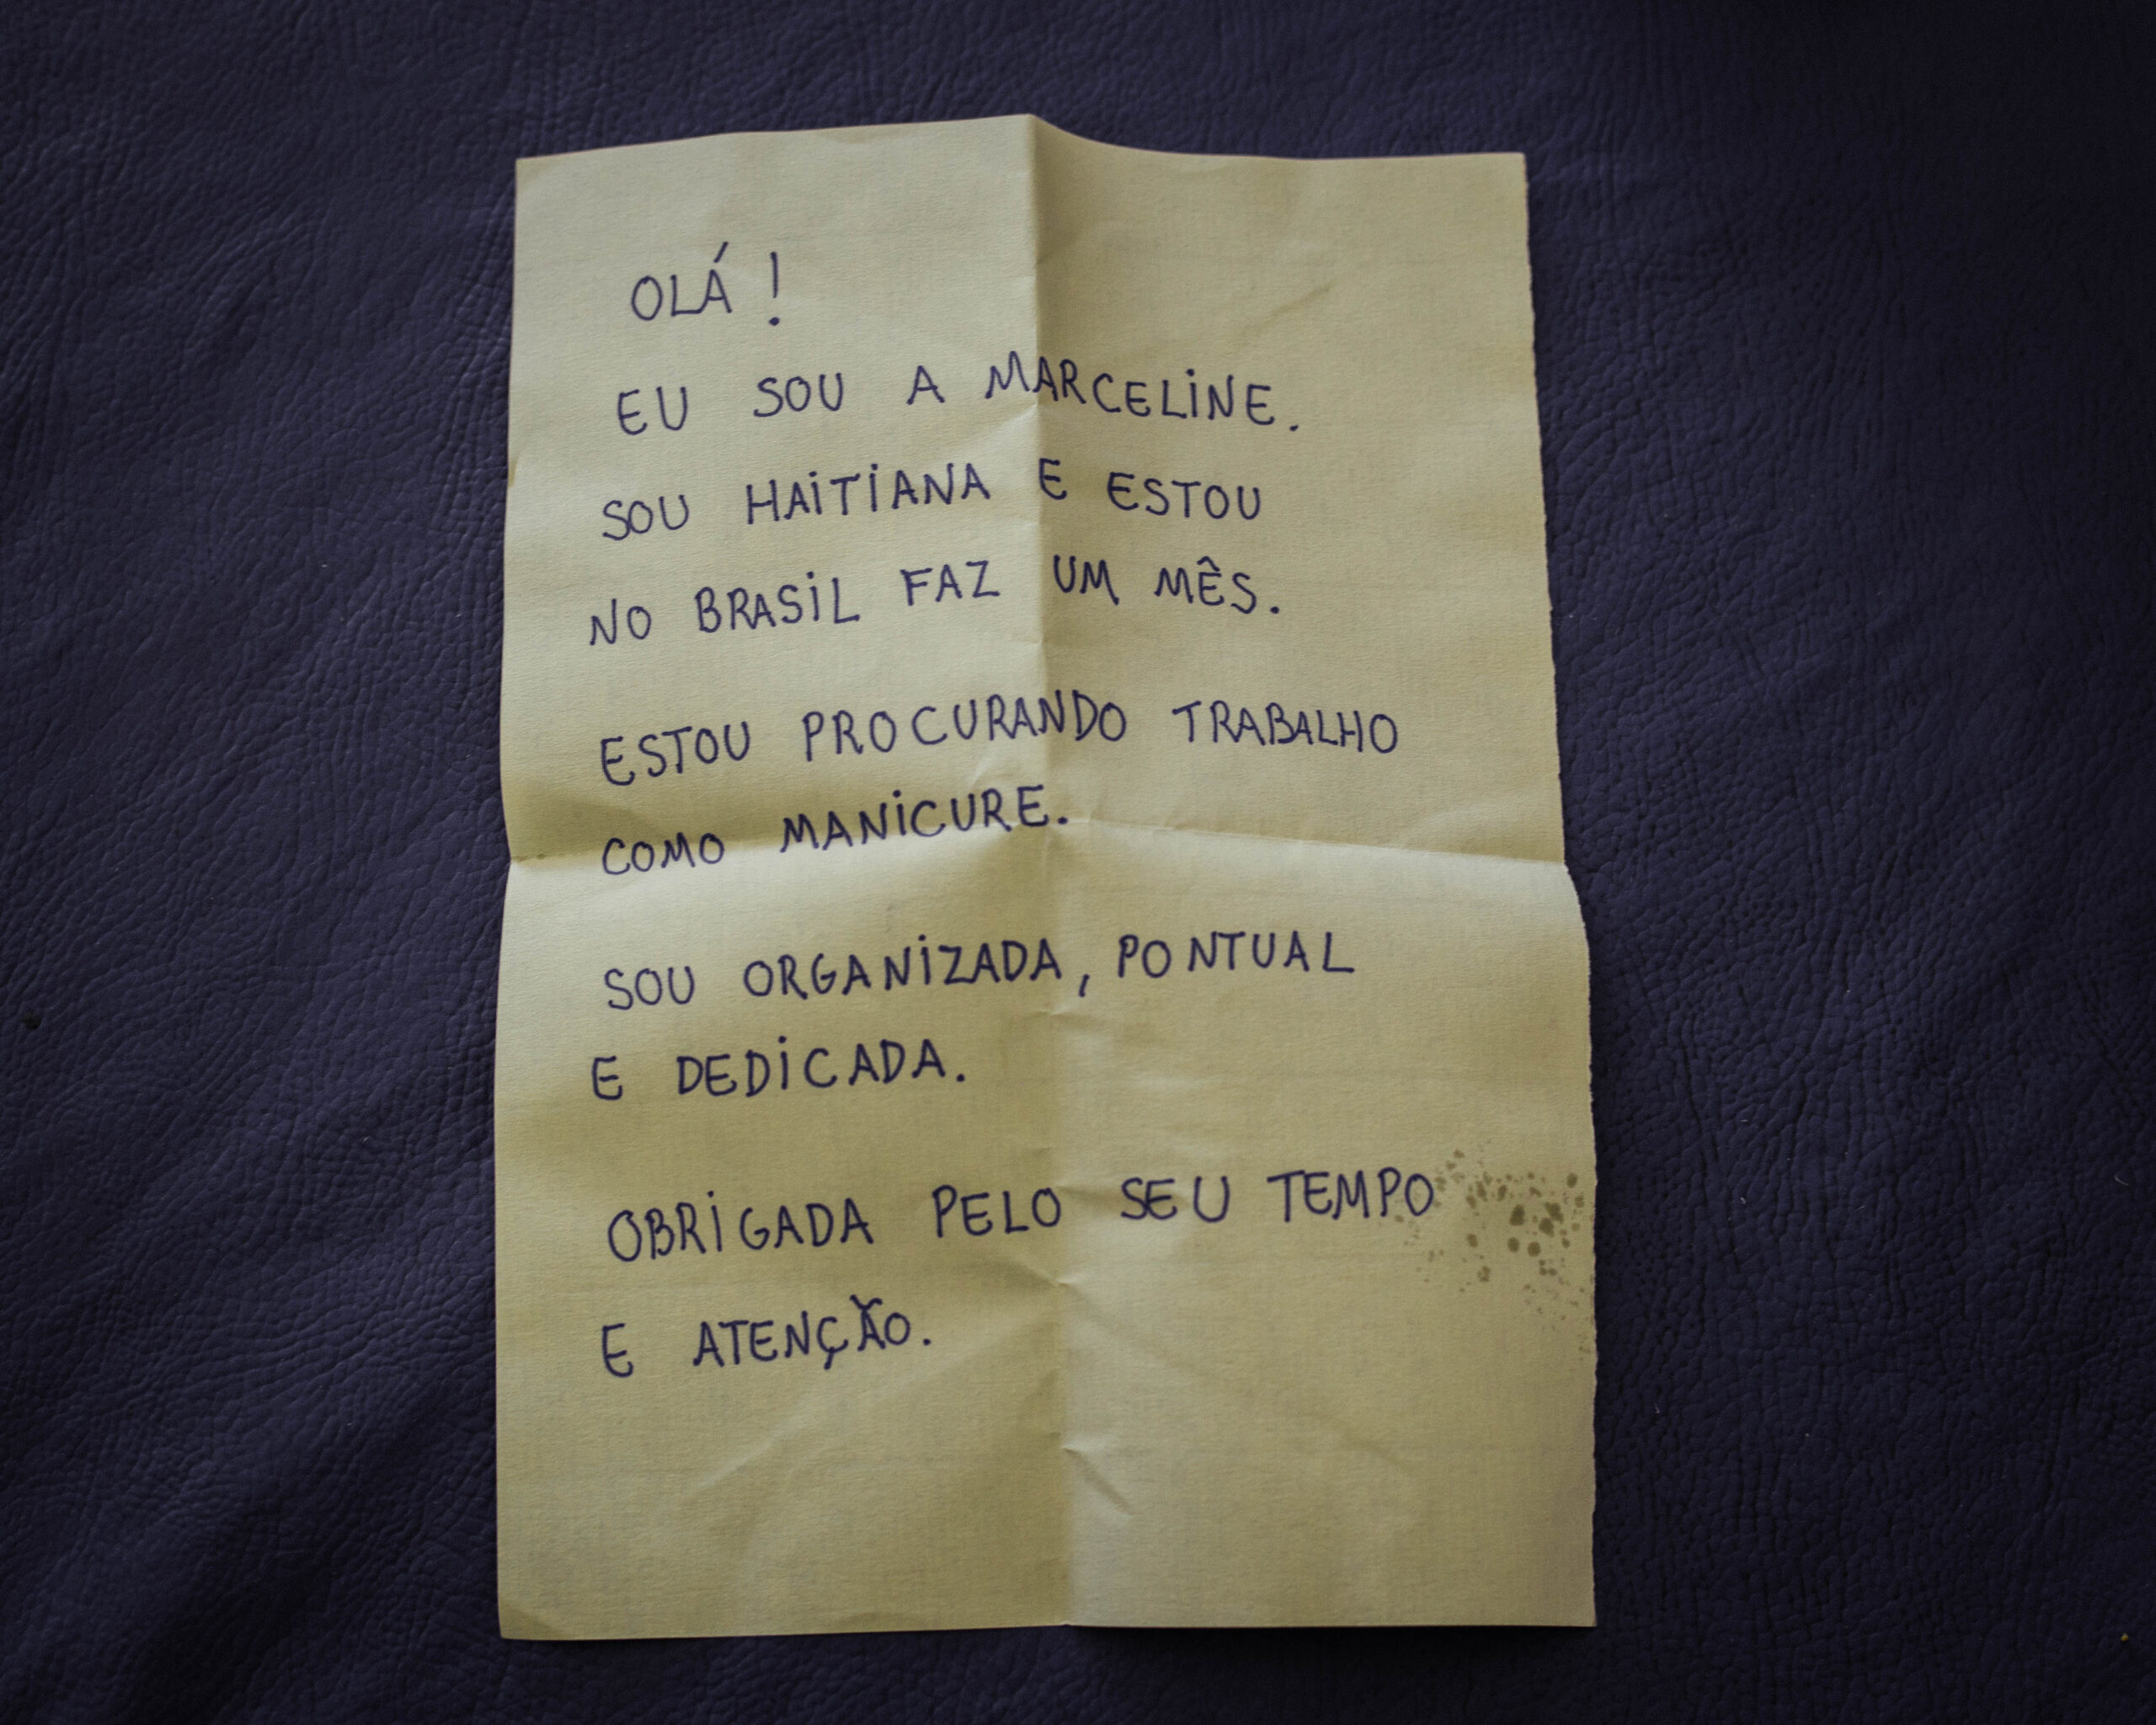 OLÁ!
EU SOU A MARCELINE.
SOU HAITIANA E ESTOU
NO BRASIL FAZ UM MÊS.
ESTOU PROCURANDO TRABALHO
COMO MANICURE.
SOU ORGANIZADA, PONTUAL
E DEDICADA.
OBRIGADA PELO SEU TEMPO
E ATENÇÃO.